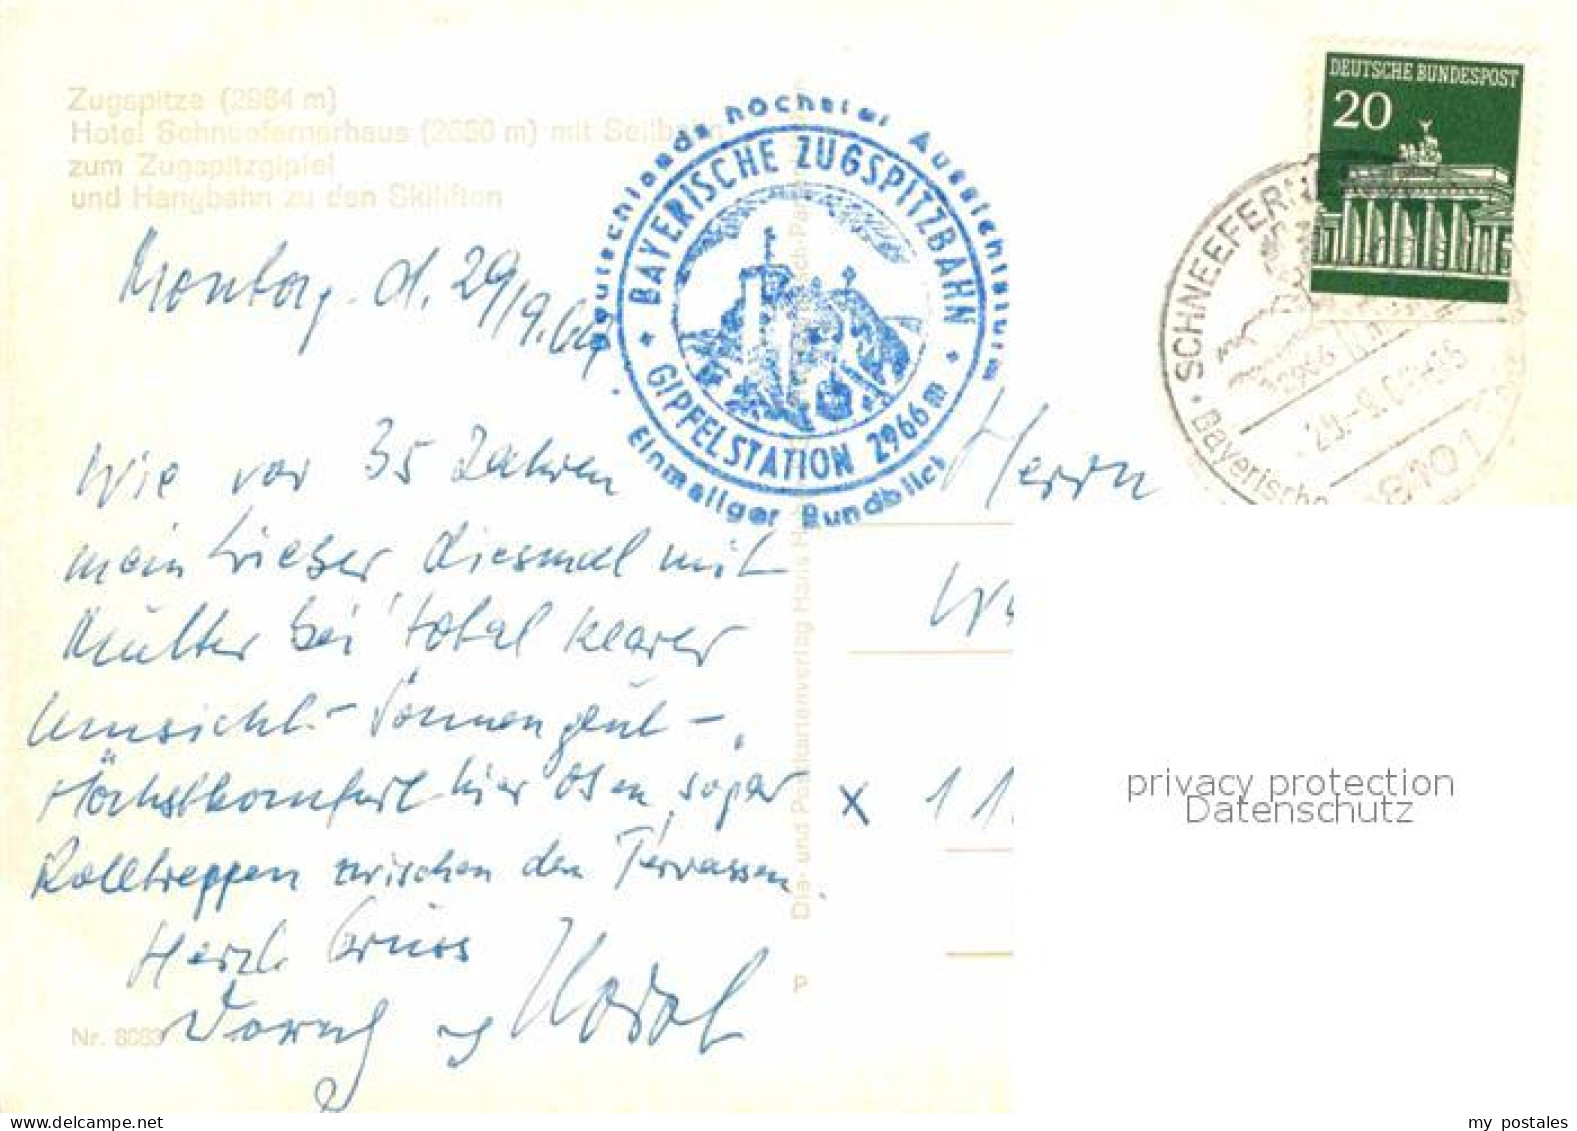 Zugspitze (2964 m)
Hotel Schneefernerhaus (2650 m) mit Seilbahn
zum Zugspitzgipfel
und Hangbahn zu den Skiliften
Deutschlands höchster Aussichtsturm
BAYERISCHE ZUGSPITZBAHN
GIPFELSTATION 2966 m
Einmaliger Rundblick
DEUTSCHE BUNDESPOST
20
SCHNEEFERNER
2966
Bayerische
8101
Montag d. 29/9.69
Wie vor 35 Jahren
mein lieber diesmal mit
Mutter bei total klarer
Umsicht - Sonnenglut -,
Höchstkomfort hier oben, sogar
Rolltreppen zwischen den Terrassen.
Herzl. Gruss
Herrn
x 11
Dia- und Postkartenverlag Hans
P
Nr. 8083
privacy protection
Datenschutz
my postales